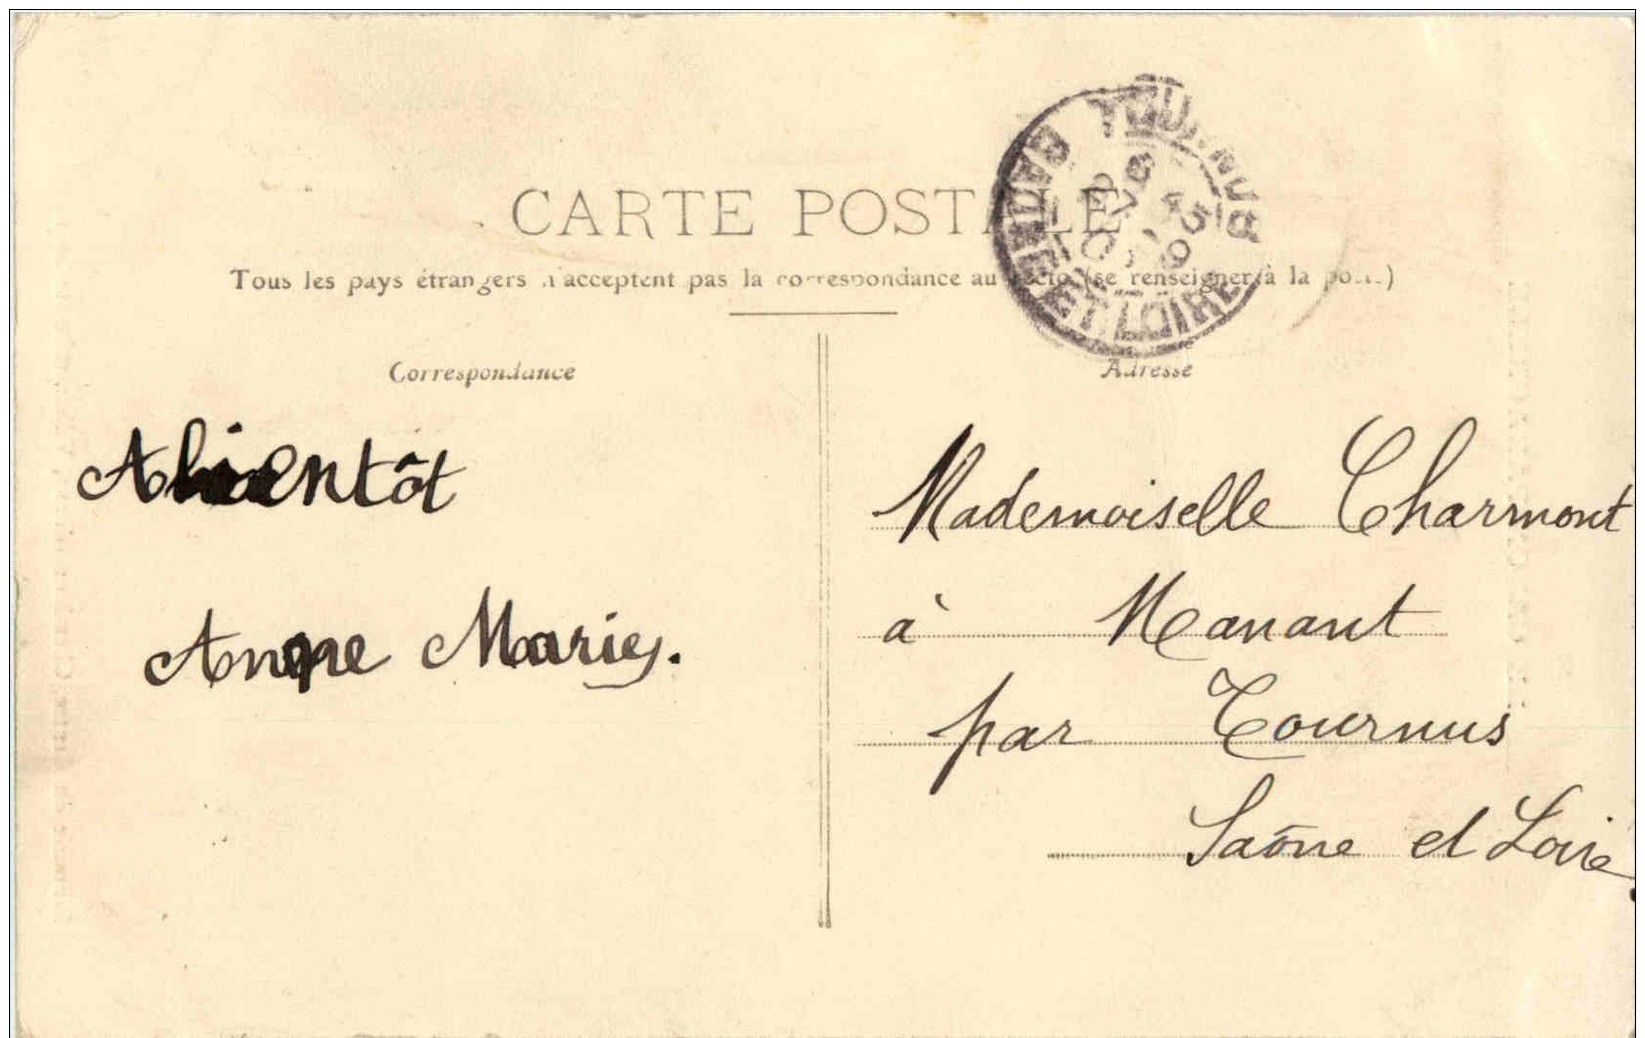 CARTE POSTALE
Tous les pays étrangers n'acceptent pas la correspondance au recto (se renseigner à la poste)
Correspondance
Abientôt
Anne Marie.
Adresse
Mademoiselle Charmont
à Manant
par Tournus
Saône et Loire
TOURNUS
SAONE ET LOIRE